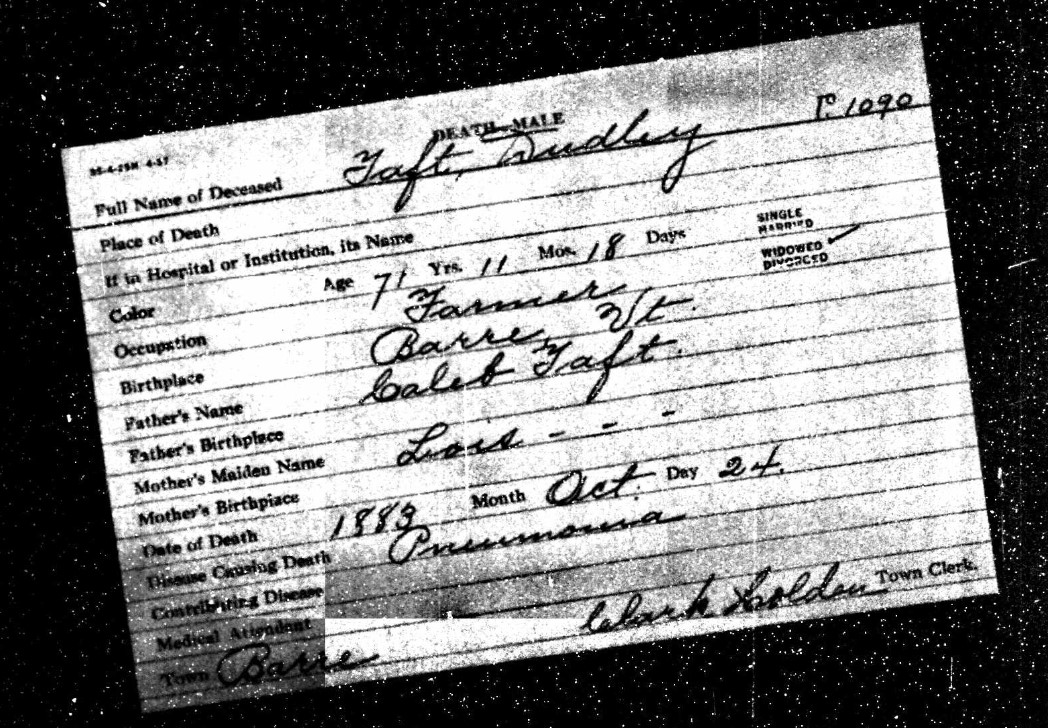 P. 1090
DEATH—MALE
Full Name of Deceased Taft, Dudley
Place of Death
If in Hospital or Institution, its Name
Color Age 71 Yrs. 11 Mos. 18 Days SINGLE MARRIED WIDOWED ✓ DIVORCED
Occupation Farmer
Birthplace Barre, Vt.
Father's Name Caleb Taft.
Father's Birthplace
Mother's Maiden Name Lois - - -
Mother's Birthplace
Date of Death 1883 Month Oct. Day 24.
Disease Causing Death Pneumonia
Contributing Disease
Medical Attendant
Clark Holden Town Clerk.
Town Barre